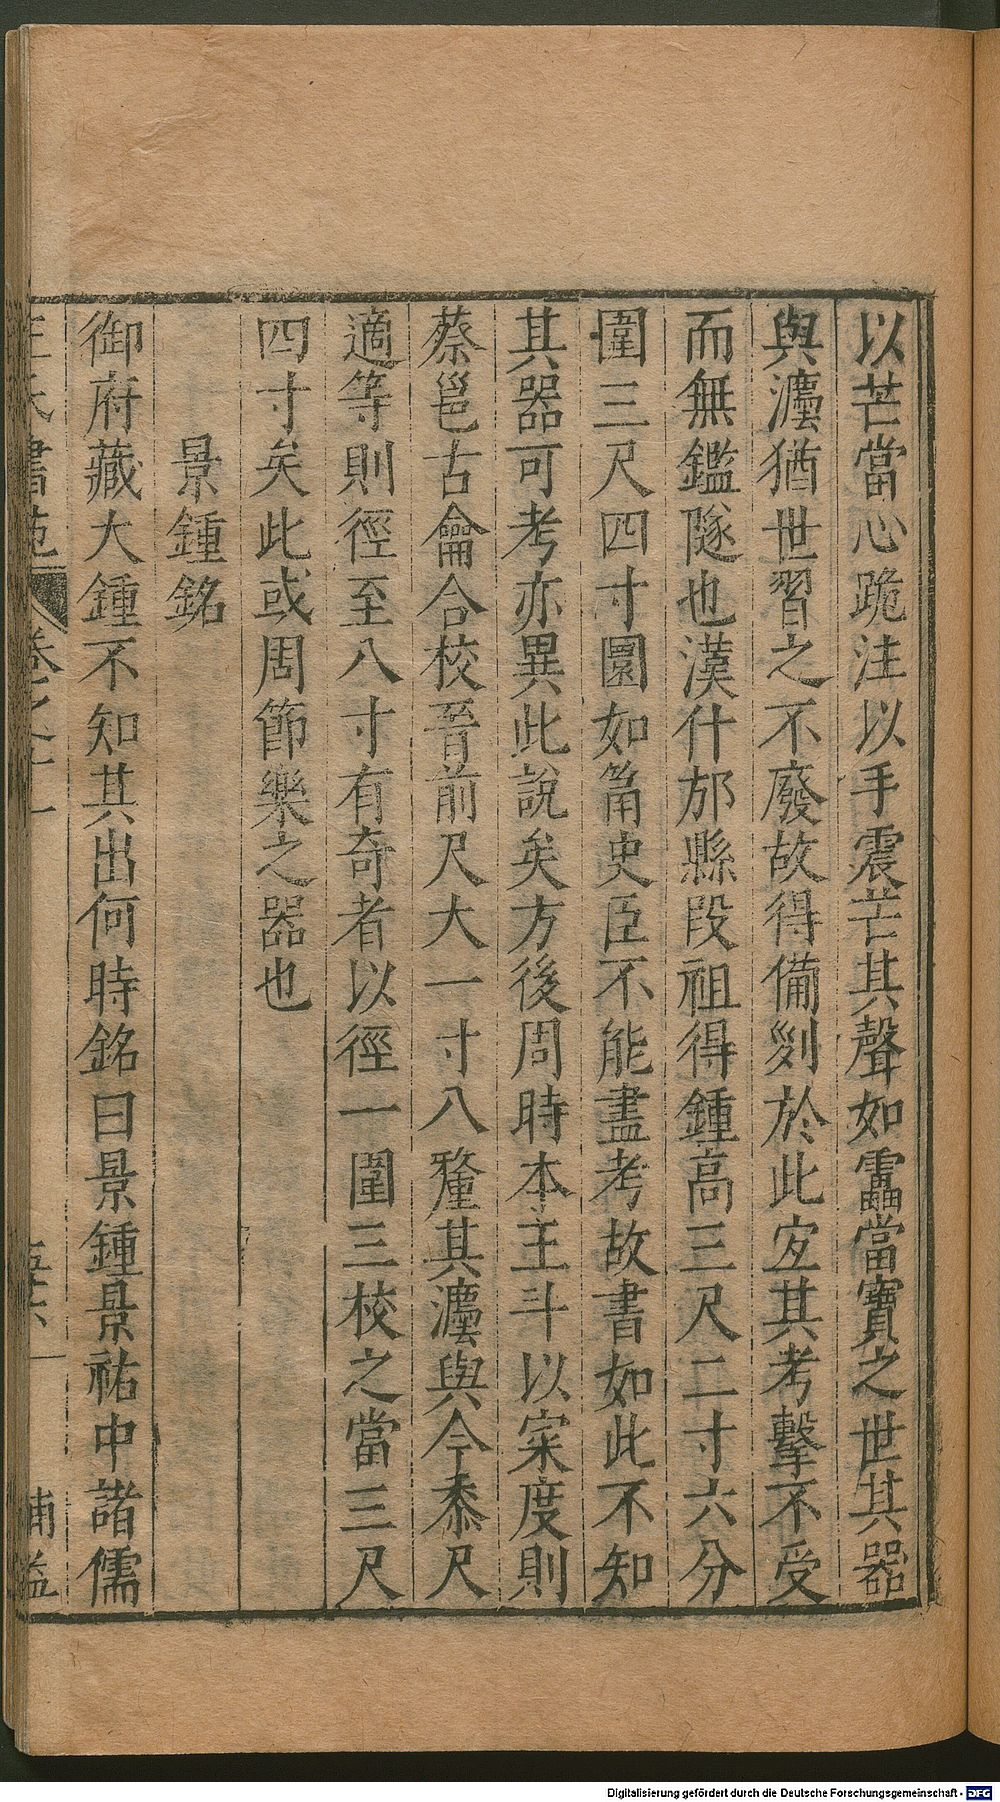 以芒當心跪注以手震芒其聲如靁當寶之世其器
與灋猶世習之不廢故得備㓨於此宐其考擊不受
而無鑑隧也漢什邡縣段祖得鍾高三尺二寸六分
圍三尺四寸圜如筩史臣不能盡考故書如此不知
其器可考亦異此說矣方後周時本玉斗以寀度則
蔡邕古龠合校晉前尺大一寸八釐其灋與今黍尺
適等則徑至八寸有奇者以徑一圍三校之當三尺
四寸矣此或周節樂之器也
景鍾銘
御府藏大鍾不知其出何時銘曰景鍾景祐中諸儒
王氏書苑 卷之十一 補益
Digitalisierung gefördert durch die Deutsche Forschungsgemeinschaft - DFG